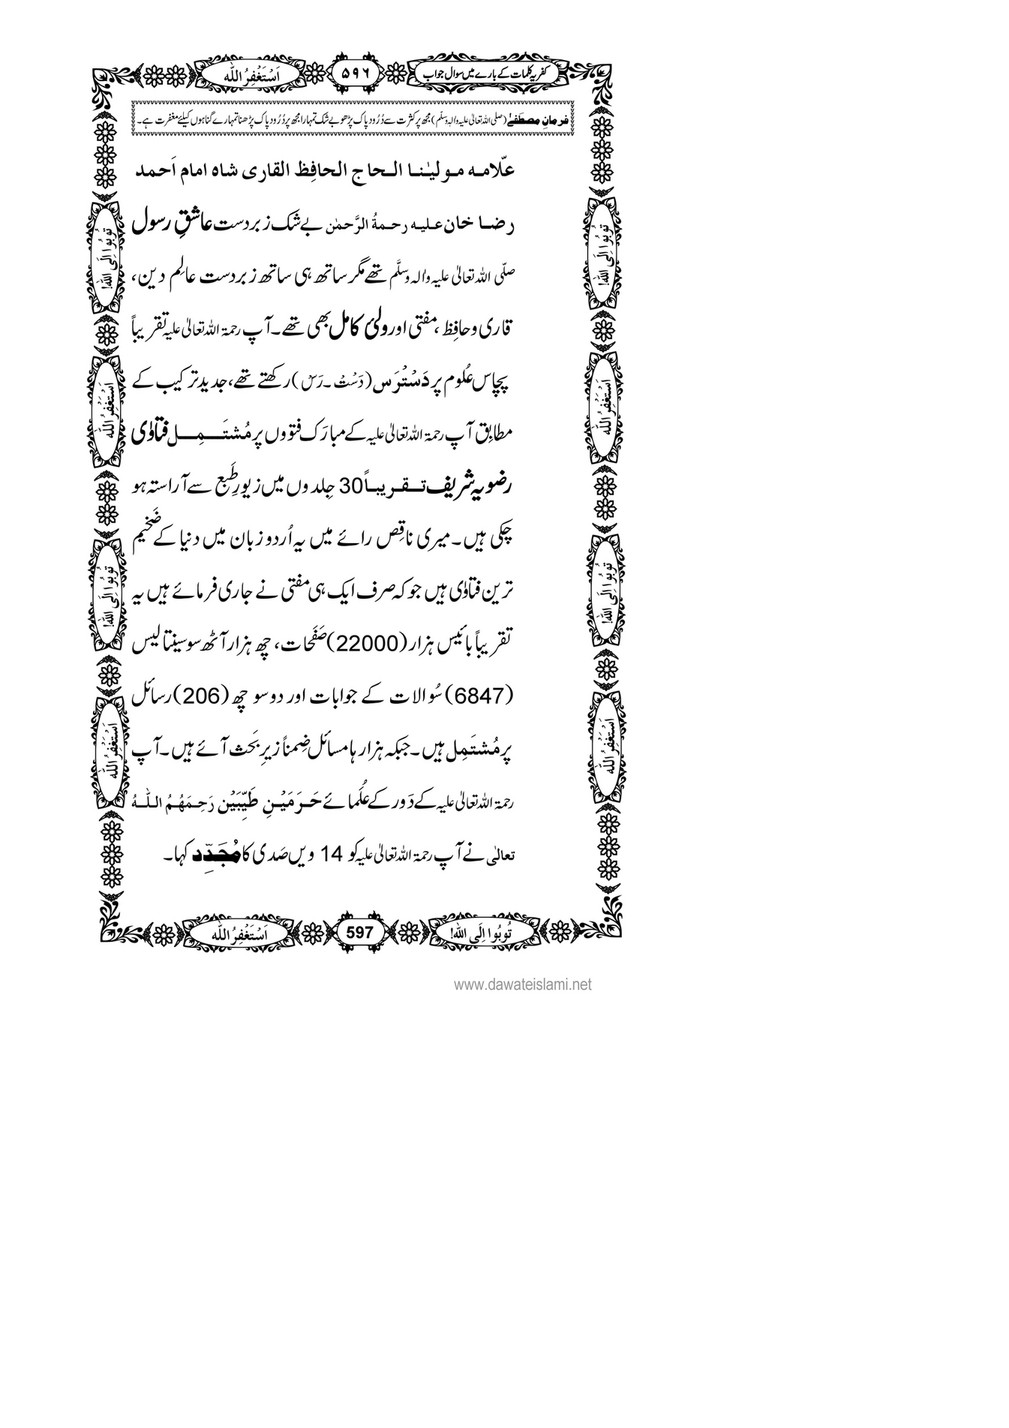 کفریہ کلمات کے بارے میں سوال جواب ۵۹۶ اَسْتَغْفِرُ اللّٰه
فرمانِ مصطفےٰ (صلی اللہ تعالیٰ علیہ والہ وسلم) مجھ پر کثرت سے دُرُود پاک پڑھو بے شک تمہارا مجھ پر دُرُود پاک پڑھنا تمہارے گناہوں کیلئے مغفرت ہے۔
علّامہ مولیٰنا الحاج الحافِظ القاری شاہ امام اَحمد
رضا خان علیہ رحمۃُ الرَّحمٰن بے شک زبردست عاشقِ رسول
صلَّی اللہ تعالیٰ علیہ واٰلہٖ وسلَّم تھے مگر ساتھ ہی ساتھ زبردست عالِمِ دین،
قاری و حافِظ، مفتی اور ولیٔ کامل بھی تھے۔ آپ رحمۃ اللہ تعالیٰ علیہ تقریباً
پچاس عُلوم پر دَسْتْرَس (دَسْتْ۔رَسْ) رکھتے تھے، جدید ترکیب کے
مطابِق آپ رحمۃ اللہ تعالیٰ علیہ کے مبارَک فتووں پر مُشتَمِل فتاوٰی
رضویہ شریف تقریباً 30 جِلدوں میں زیورِ طَبع سے آراستہ ہو
چکی ہیں۔ میری ناقِص رائے میں یہ اُردو زبان میں دنیا کے ضَخیم
ترین فتاوٰی ہیں جو کہ صرف ایک ہی مفتی نے جاری فرمائے ہیں یہ
تقریباً بائیس ہزار (22000) صَفَحات، چھ ہزار آٹھ سو سینتالیس
(6847) سُوالات کے جوابات اور دو سو چھ (206) رسائل
پر مُشتَمِل ہیں۔ جبکہ ہزارہا مسائل ضِمناً زیرِ بَحث آئے ہیں۔ آپ
رحمۃ اللہ تعالیٰ علیہ کے دَور کے عُلَمائے حَرَمَیْنِ طَیِّبَیْن رَحِمَهُمُ اللّٰهُ
تعالیٰ نے آپ رحمۃ اللہ تعالیٰ علیہ کو 14 ویں صَدی کا مُجَدِّد کہا۔
تُوبُوا اِلَی اللّٰه!
اَسْتَغْفِرُ اللّٰه
تُوبُوا اِلَی اللّٰه!
اَسْتَغْفِرُ اللّٰه
تُوبُوا اِلَی اللّٰه!
اَسْتَغْفِرُ اللّٰه
تُوبُوا اِلَی اللّٰه!
اَسْتَغْفِرُ اللّٰه
تُوبُوا اِلَی اللّٰه! 597 اَسْتَغْفِرُ اللّٰه
www.dawateislami.net